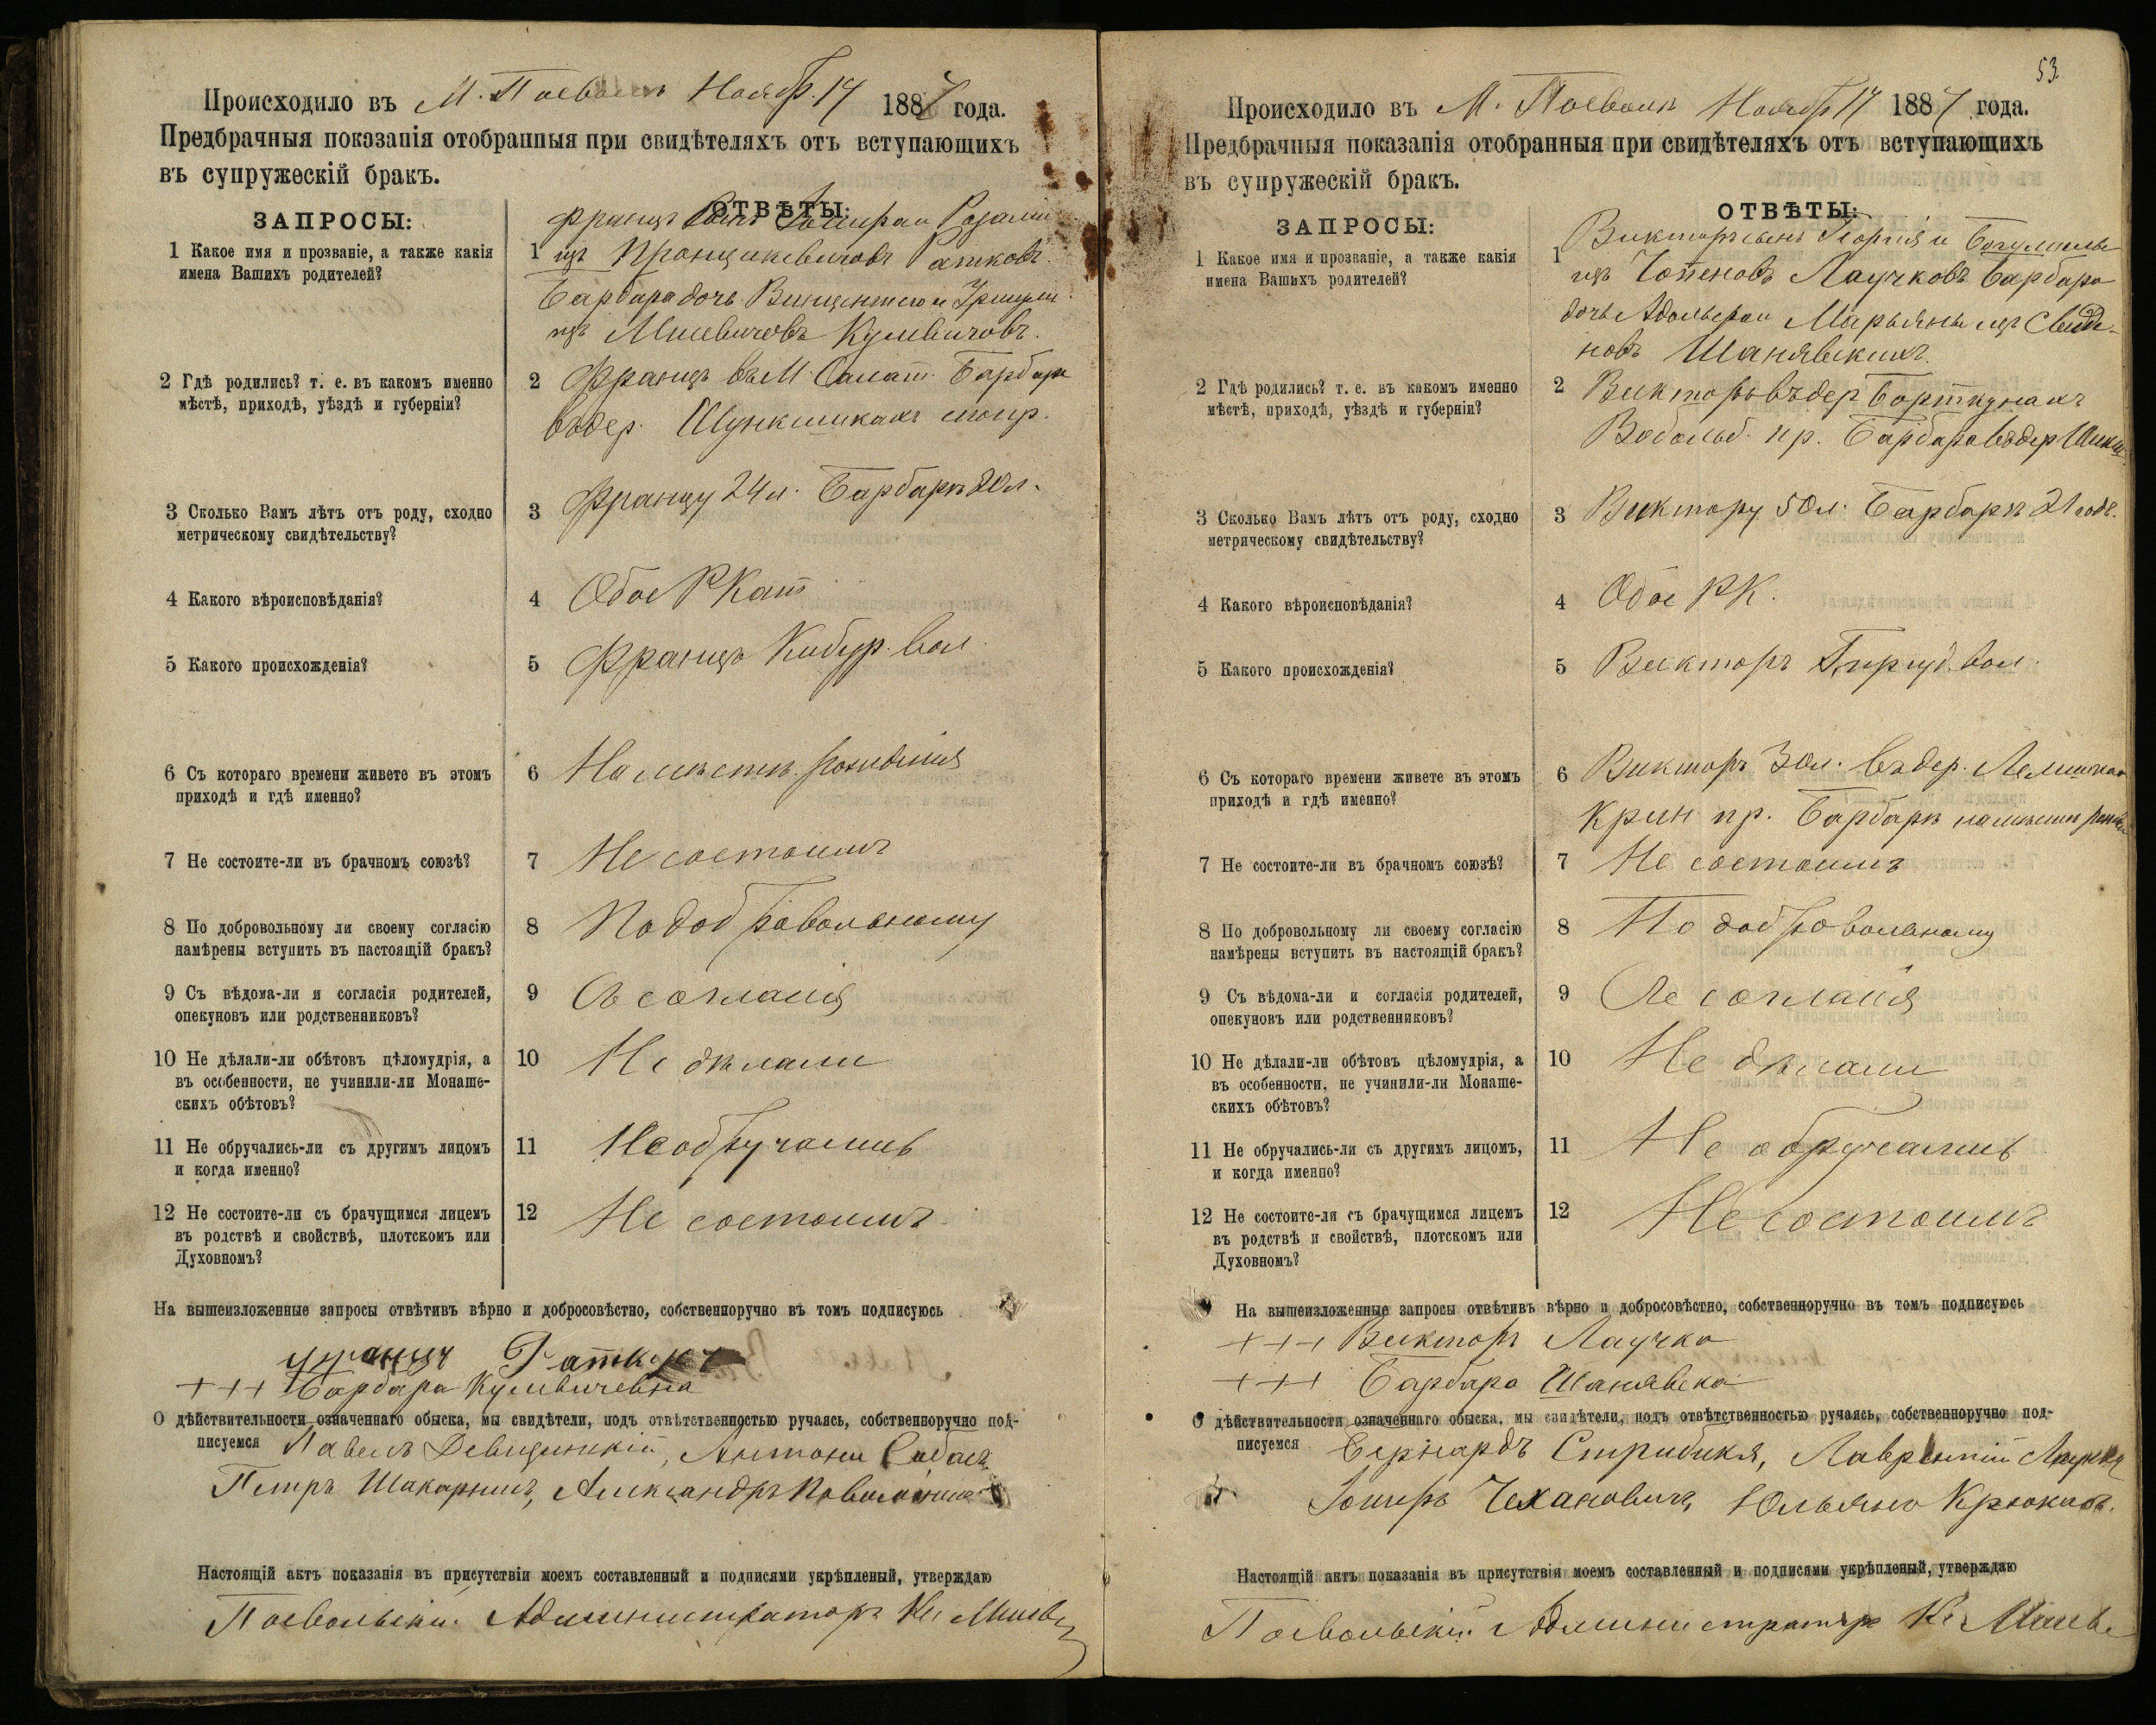 Происходило въ М. Поевол Ноябр. 17 1887 года.
Предбрачныя показанія отобранныя при свидѣтеляхъ отъ вступающихъ
въ супружескій бракъ.
ЗАПРОСЫ:
ОТВѢТЫ:
1 Какое имя и прозваніе, а также какія
имена Вашихъ родителей?
1 Францъ сынъ
изъ
Барбара дочь Винцентія и
изъ Кулевичовъ.
2 Гдѣ родились? т. е. въ какомъ именно
мѣстѣ, приходѣ, уѣздѣ и губерніи?
2 Францъ въ М. Салат. Барбара
въ дер.
3 Сколько Вамъ лѣтъ отъ роду, сходно
метрическому свидѣтельству?
3 Францу 24 л. Барбарѣ 20 л.
4 Какого вѣроисповѣданія?
4 Обое Р Кат
5 Какого происхожденія?
5 Францъ вол.
6 Съ котораго времени живете въ этомъ
приходѣ и гдѣ именно?
6 На мѣстѣ рожденія
7 Не состоите-ли въ брачномъ союзѣ?
7 Не состоимъ
8 По добровольному ли своему согласію
намѣрены вступить въ настоящій бракъ?
8 По добровольному
9 Съ вѣдома-ли и согласія родителей,
опекуновъ или родственниковъ?
9 Съ согласія
10 Не дѣлали-ли обѣтовъ цѣломудрія, а
въ особенности, не учинили-ли Монаше-
скихъ обѣтовъ?
10 Не дѣлали
11 Не обручались-ли съ другимъ лицомъ
и когда именно?
11 Не обручались
12 Не состоите-ли съ брачущимся лицемъ
въ родствѣ и свойствѣ, плотскомъ или
Духовномъ?
12 Не состоимъ
На вышеизложенные запросы отвѣтивъ вѣрно и добросовѣстно, собственноручно въ томъ подписуюсь
+++ Барбара Кулевичевна
О дѣйствительности означеннаго обыска, мы свидѣтели, подъ отвѣтственностью ручаясь, собственноручно под-
писуемся Павелъ Антони
Петръ Александръ
Настоящій актъ показанія въ присутствіи моемъ составленный и подписями укрѣпленый, утверждаю
Поевольскій Администраторъ Кс.
53
Происходило въ М. Поевол Ноябр 17 1887 года.
Предбрачныя показанія отобранныя при свидѣтеляхъ отъ вступающихъ
въ супружескій бракъ.
ЗАПРОСЫ:
ОТВѢТЫ:
1 Какое имя и прозваніе, а также какія
имена Вашихъ родителей?
1 Викторъ сынъ Георгія и
изъ Лаучковъ Барбара
дочь Адольфа и Марьяны изъ
новъ Шанявскихъ.
2 Гдѣ родились? т. е. въ какомъ именно
мѣстѣ, приходѣ, уѣздѣ и губерніи?
2 Викторъ въ дер Борткунахъ
Вобольб. пр. Барбара въ дер
3 Сколько Вамъ лѣтъ отъ роду, сходно
метрическому свидѣтельству?
3 Виктору 50 л. Барбарѣ 21 годъ.
4 Какого вѣроисповѣданія?
4 Обое РК.
5 Какого происхожденія?
5 Викторъ вол.
6 Съ котораго времени живете въ этомъ
приходѣ и гдѣ именно?
6 Викторъ 30 л. въ дер.
Крин пр. Барбара на мѣстѣ
7 Не состоите-ли въ брачномъ союзѣ?
7 Не состоимъ
8 По добровольному ли своему согласію
намѣрены вступить въ настоящій бракъ?
8 По добровольному
9 Съ вѣдома-ли и согласія родителей,
опекуновъ или родственниковъ?
9 согласія
10 Не дѣлали-ли обѣтовъ цѣломудрія, а
въ особенности, не учинили-ли Монаше-
скихъ обѣтовъ?
10 Не дѣлали
11 Не обручались-ли съ другимъ лицомъ,
и когда именно?
11 Не обручались
12 Не состоите-ли съ брачущимся лицемъ
въ родствѣ и свойствѣ, плотскомъ или
Духовномъ?
12 Не состоимъ
На вышеизложенные запросы отвѣтивъ вѣрно и добросовѣстно, собственноручно въ томъ подписуюсь
+++ Викторъ Лаучко
+++ Барбара Шанявска
О дѣйствительности означеннаго обыска, мы свидѣтели, подъ отвѣтственностью ручаясь, собственноручно под-
писуемся Бернардъ Стрибикя, Лаврентій
Чехановичъ, Юльянъ
Настоящій актъ показанія въ присутствіи моемъ составленный и подписями укрѣпленый, утверждаю
Поевольскій Администраторъ Кс.